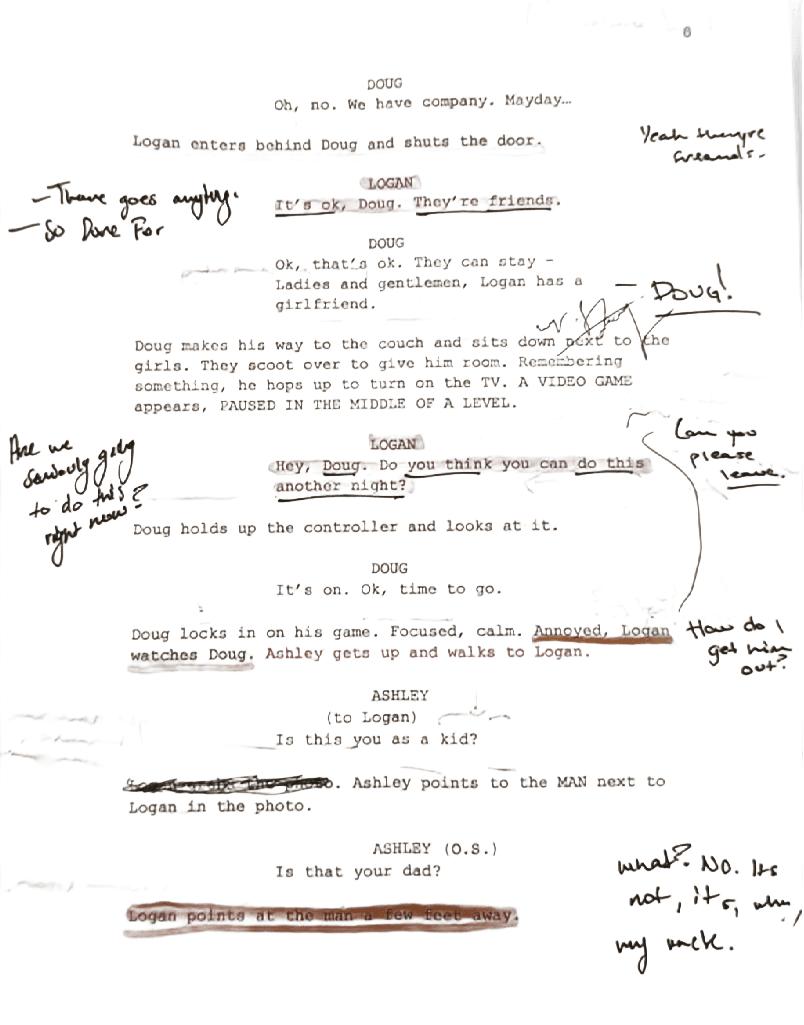 6
DOUG
Oh, no. We have company. Mayday…
Yeah they're
Logan enters behind Doug and shuts the door.
LOGAN
- There goes anything.
It's ok, Doug. They're friends.
- So Done For
DOUG
Ok, that's ok. They can stay –
Ladies and gentlemen, Logan has a
girlfriend.
— DOUG!
Doug makes his way to the couch and sits down next to the
girls. They scoot over to give him room. Remembering
something, he hops up to turn on the TV. A VIDEO GAME
appears, PAUSED IN THE MIDDLE OF A LEVEL.
Can you
please
leave.
LOGAN
Hey, Doug. Do you think you can do this
another night?
Are we
seriously going
to do this
right now?
Doug holds up the controller and looks at it.
DOUG
It's on. Ok, time to go.
Doug locks in on his game. Focused, calm. Annoyed, Logan
watches Doug. Ashley gets up and walks to Logan.
How do I
get him
out?
ASHLEY
(to Logan)
Is this you as a kid?
. Ashley points to the MAN next to
Logan in the photo.
ASHLEY (O.S.)
Is that your dad?
what? No. Its
not, it's,
my uncle.
Logan points at the man a few feet away.